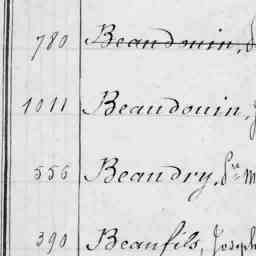 780 Beaudouin,
1011 Beaudouin,
556 Beaudry,
390 Beaufils, Joseph